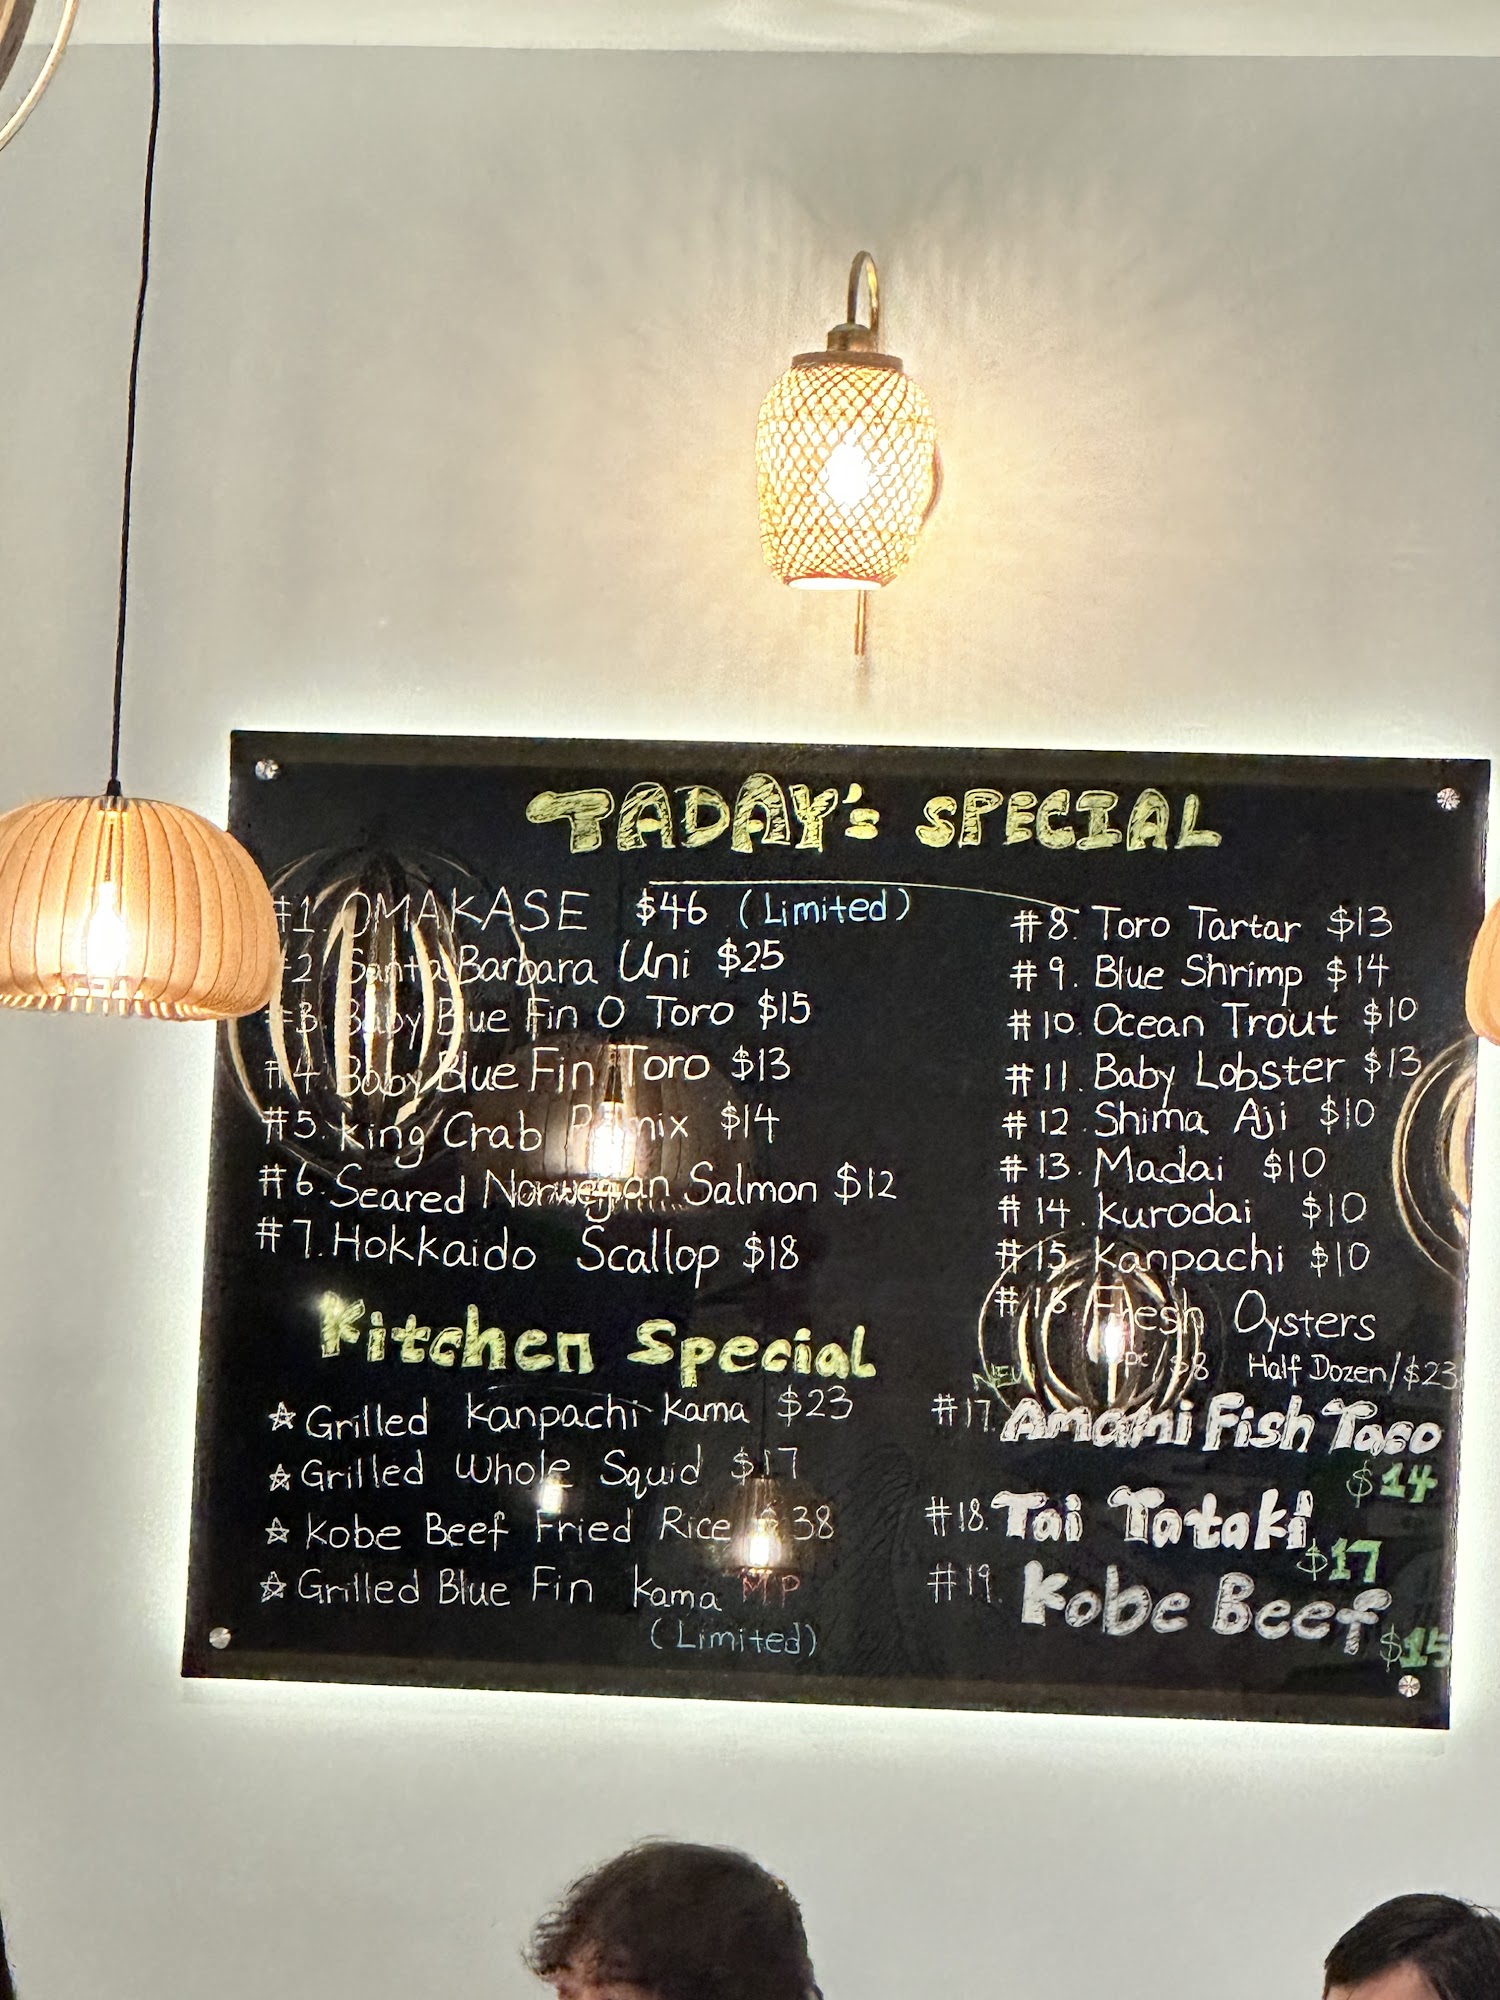 TADAY's SPECIAL
#1. OMAKASE $46 (Limited)
#2 Santa Barbara Uni $25
#3. Baby Blue Fin O Toro $15
#4. Baby Blue Fin Toro $13
#5. King Crab $14
#6. Seared Norwegian Salmon $12
#7. Hokkaido Scallop $18
Kitchen Special
☆ Grilled Kanpachi Kama $23
☆ Grilled Whole Squid $17
☆ Kobe Beef Fried Rice $38
☆ Grilled Blue Fin Kama MP
(Limited)
#8. Toro Tartar $13
#9. Blue Shrimp $14
#10. Ocean Trout $10
#11. Baby Lobster $13
#12. Shima Aji $10
#13. Madai $10
#14. Kurodai $10
#15. Kanpachi $10
#16. Fresh Oysters
pc/$8 Half Dozen/$23
NEW
#17. Amami Fish Taco
$14
#18. Tai Tataki
$17
#19. Kobe Beef
$15